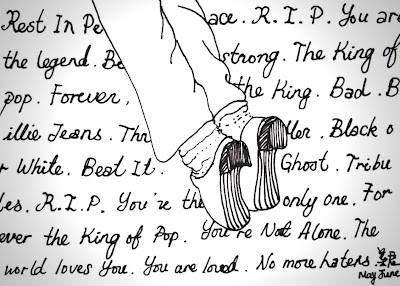 Rest In Pe ace. R.I.P. You are
the legend. Be strong. The King of
pop. Forever, the King. Bad. B
illie Jeans. Thri ller. Black o
r White. Beat It. Ghost. Tribu
tes. R.I.P. You're the only one. For
ever the King of Pop. You're Not Alone. The
world loves you. You are loved. No more haters.
May June